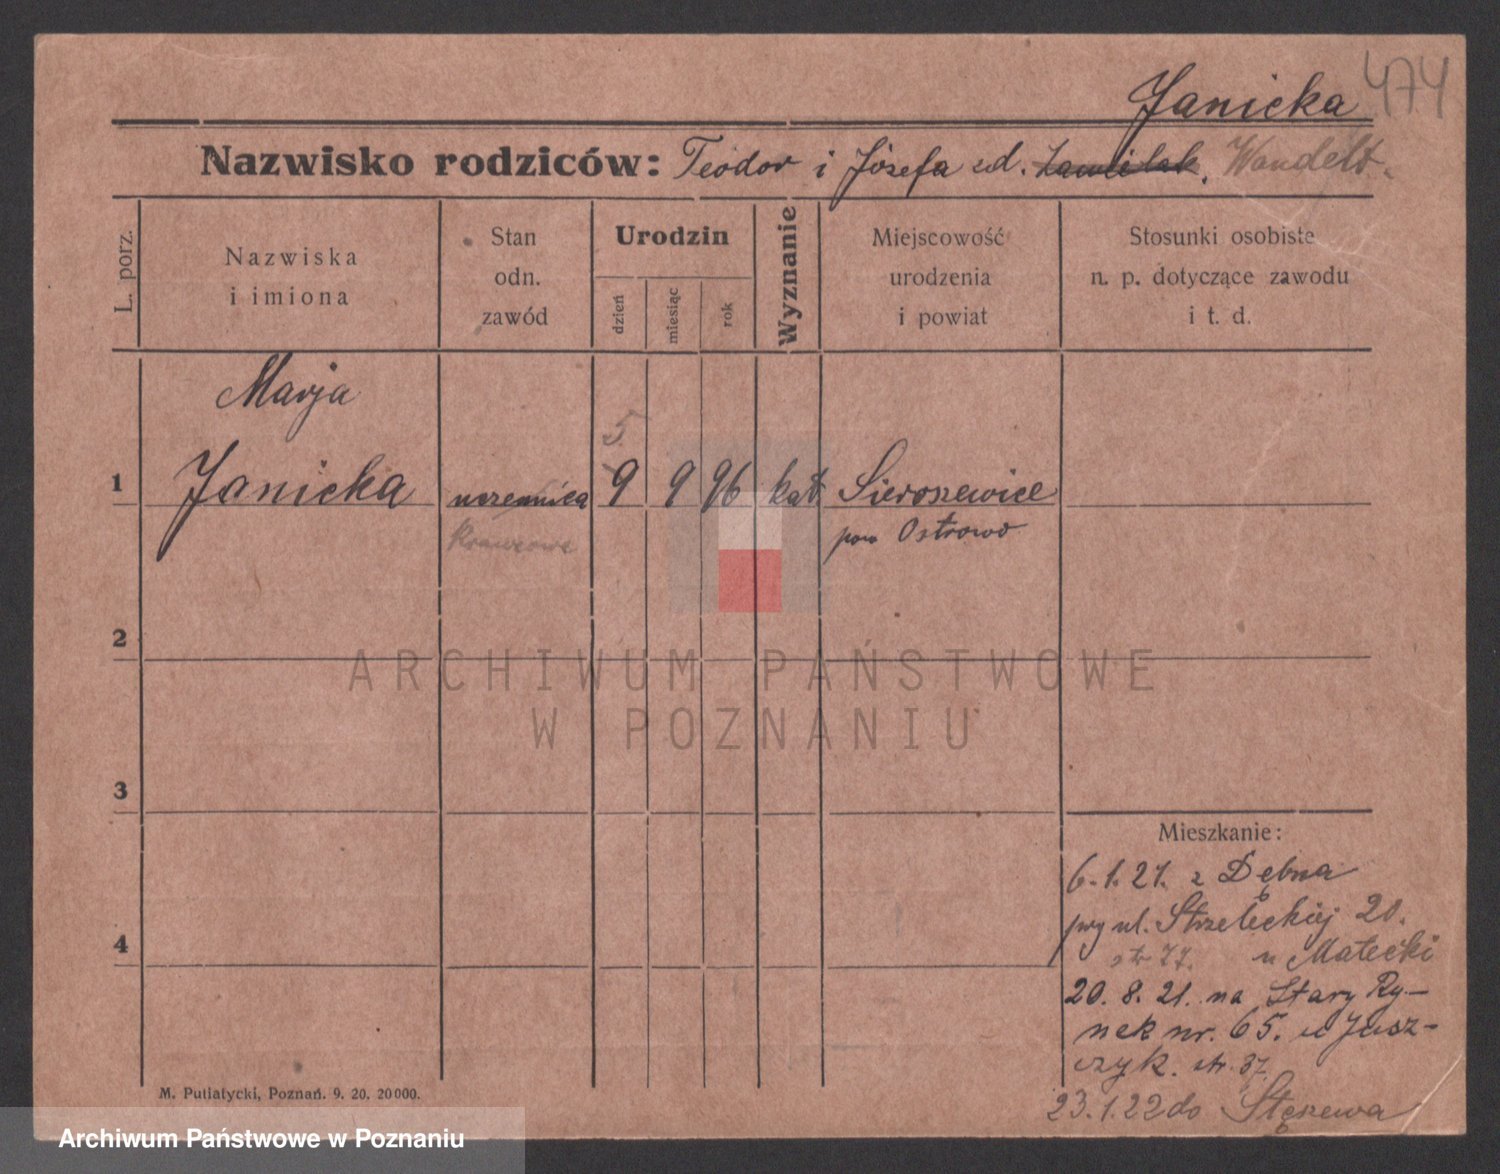 Janicka 474
Nazwisko rodziców: Teodor i Józefa zd. Wandelt.
L. porz.
Nazwiska
i imiona
Stan
odn.
zawód
Urodzin
dzień
miesiąc
rok
Wyznanie
Miejscowość
urodzenia
i powiat
Stosunki osobiste
n. p. dotyczące zawodu
i t. d.
Marja
5
1 Janicka uczennica 9 9 96 kat Sieroszewice
pow Ostrowo
2
3
4
ARCHIWUM PAŃSTWOWE
W POZNANIU
Mieszkanie:
6.1.21. z Dębna
przy ul. Strzeleckiej 20.
str 77. u Matecki
20. 8. 21. na Stary Ry-
nek nr. 65. u Jusz-
czyk. str. 37
23.1.22 do Stęszewa
M. Putiatycki, Poznań. 9. 20. 20000.
Archiwum Państwowe w Poznaniu